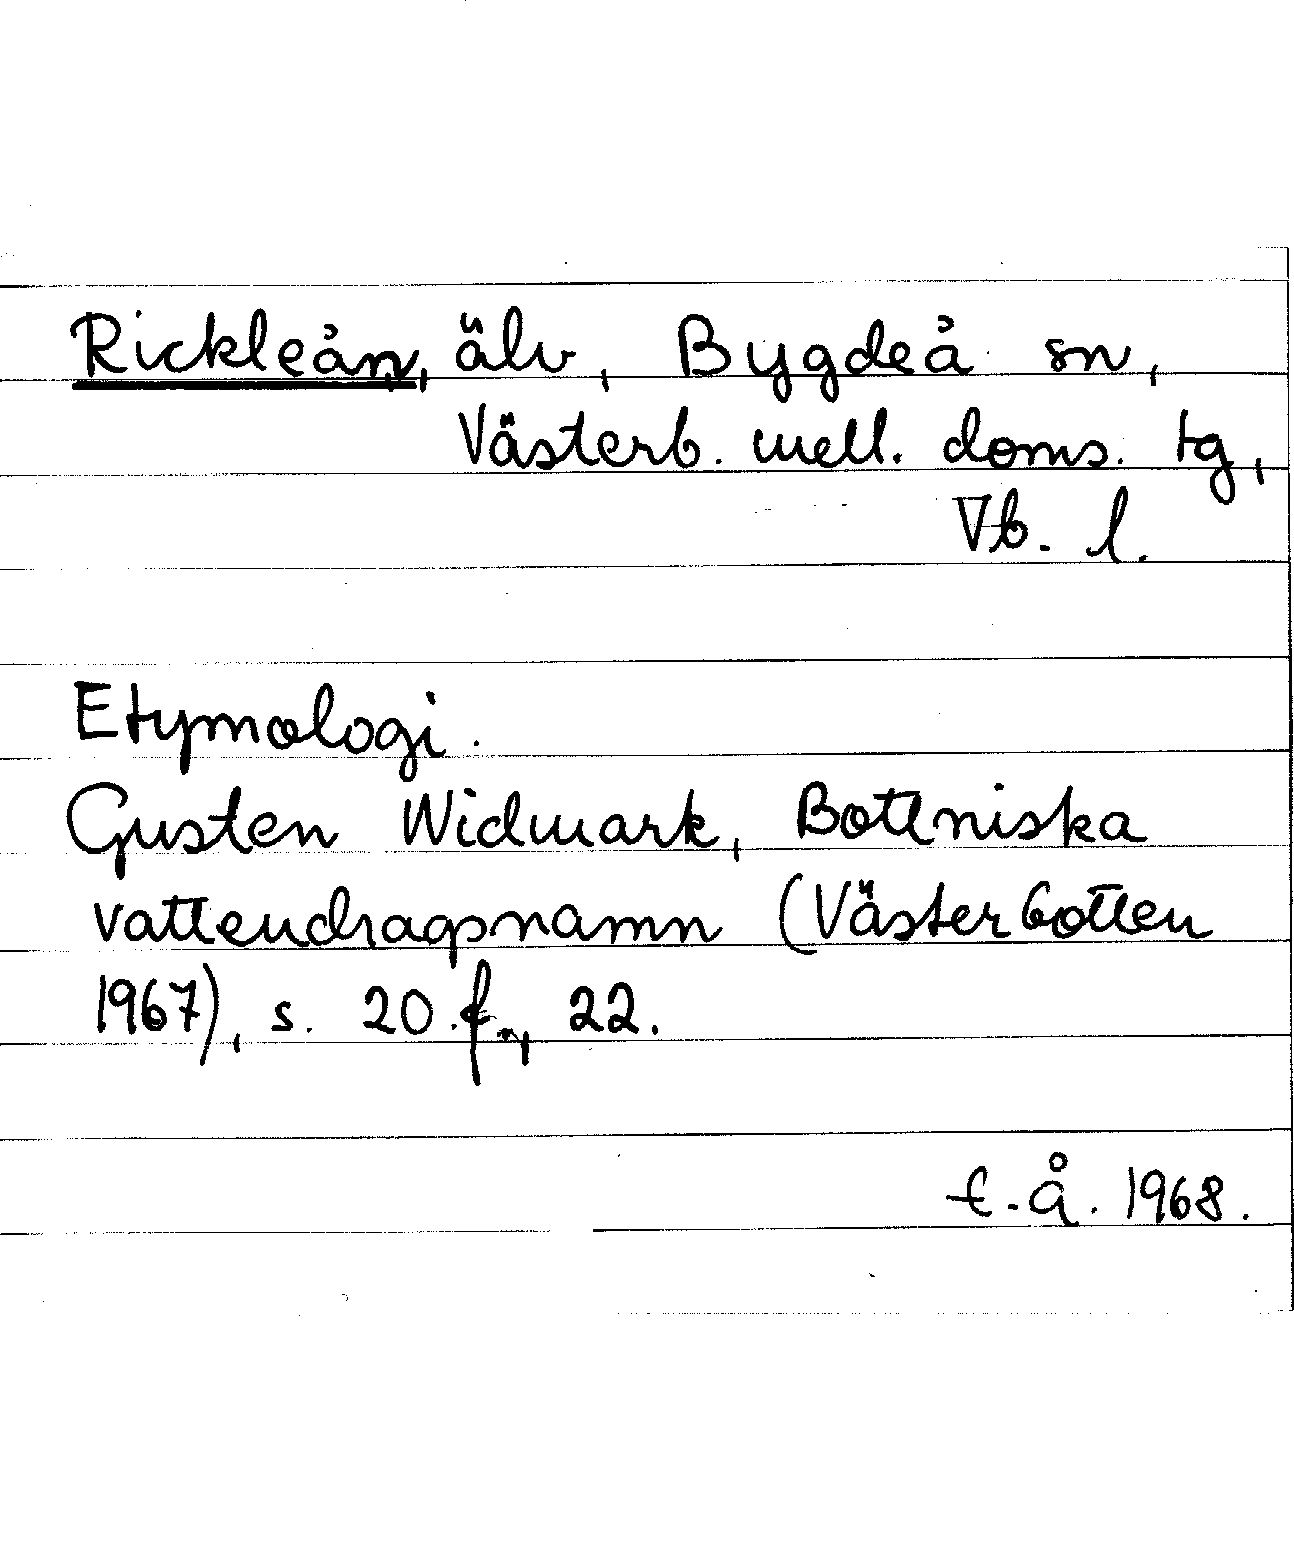 Rickleån, älv, Bygdeå sn,
Västerb. mell. doms. tg,
Vb. l.
Etymologi.
Gusten Widmark, Bottniska
vattendragsnamn (Västerbotten
1967), s. 20 f., 22.
t.Å. 1968.